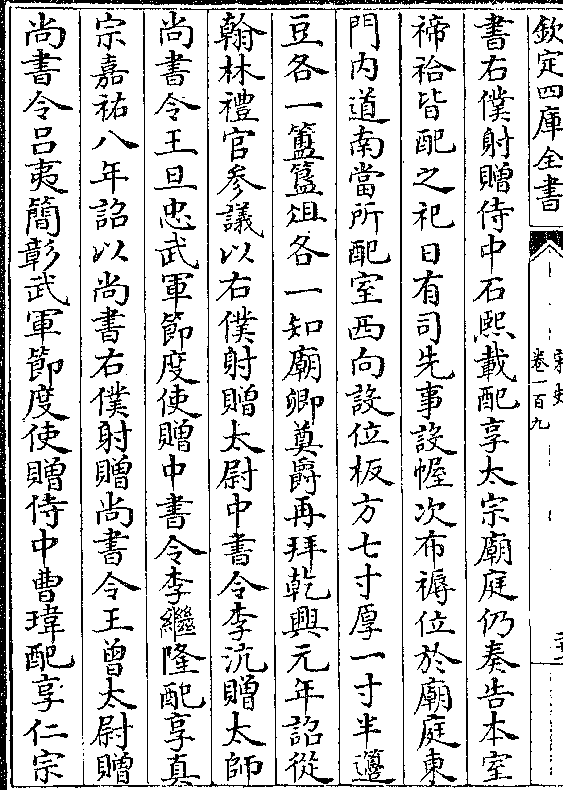 欽定四庫全書
宋史
卷一百九
書右僕射贈侍中石熙載配享太宗廟庭仍奏告本室
禘祫皆配之祀日有司先事設幄次布褥位於廟庭東
門内道南當所配室西向設位板方七寸厚一寸半籩
豆各一簠簋俎各一知廟卿奠爵再拜乾興元年詔從
翰林禮官參議以右僕射贈太尉中書令李沆贈太師
尚書令王旦忠武軍節度使贈中書令李繼隆配享真
宗嘉祐八年詔以尚書右僕射贈尚書令王曾太尉贈
尚書令吕夷簡彰武軍節度使贈侍中曹瑋配享仁宗